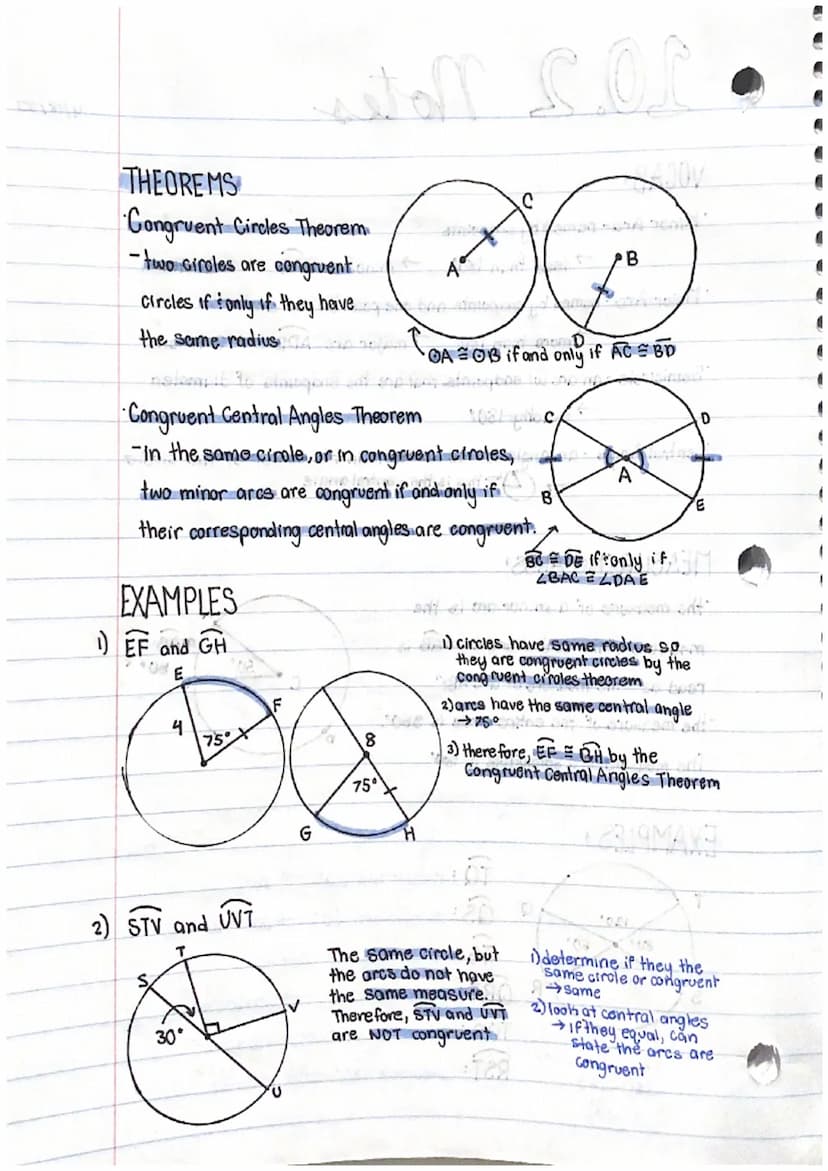 THEOREMS
·Congruent Circles Theorem
-two circles are congruent
circles if & only if they have
the same radius
A
C
B
D
⊙A ≅ ⊙B if and only if AC ≅ BD
·Congruent Central Angles Theorem
-In the same circle, or in congruent circles,
two minor arcs are congruent if and only if
their corresponding central angles are congruent.
C
D
A
B
E
BC ≅ DE if & only if
∠BAC ≅ ∠DAE
EXAMPLES
1) EF and GH
E
F
4
75°
8
75°
G
H
1) circles have same radius so
they are congruent circles by the
congruent circles theorem
2) arcs have the same central angle
→ 75°
3) therefore, EF ≅ GH by the
Congruent Central Angles Theorem
2) STV and UVT
T
S
V
30°
U
The same circle, but
the arcs do not have
the same measure.
Therefore, STV and UVT
are NOT congruent
1) determine if they the
same circle or congruent
→ same
2) look at central angles
→ if they equal, can
state the arcs are
congruent